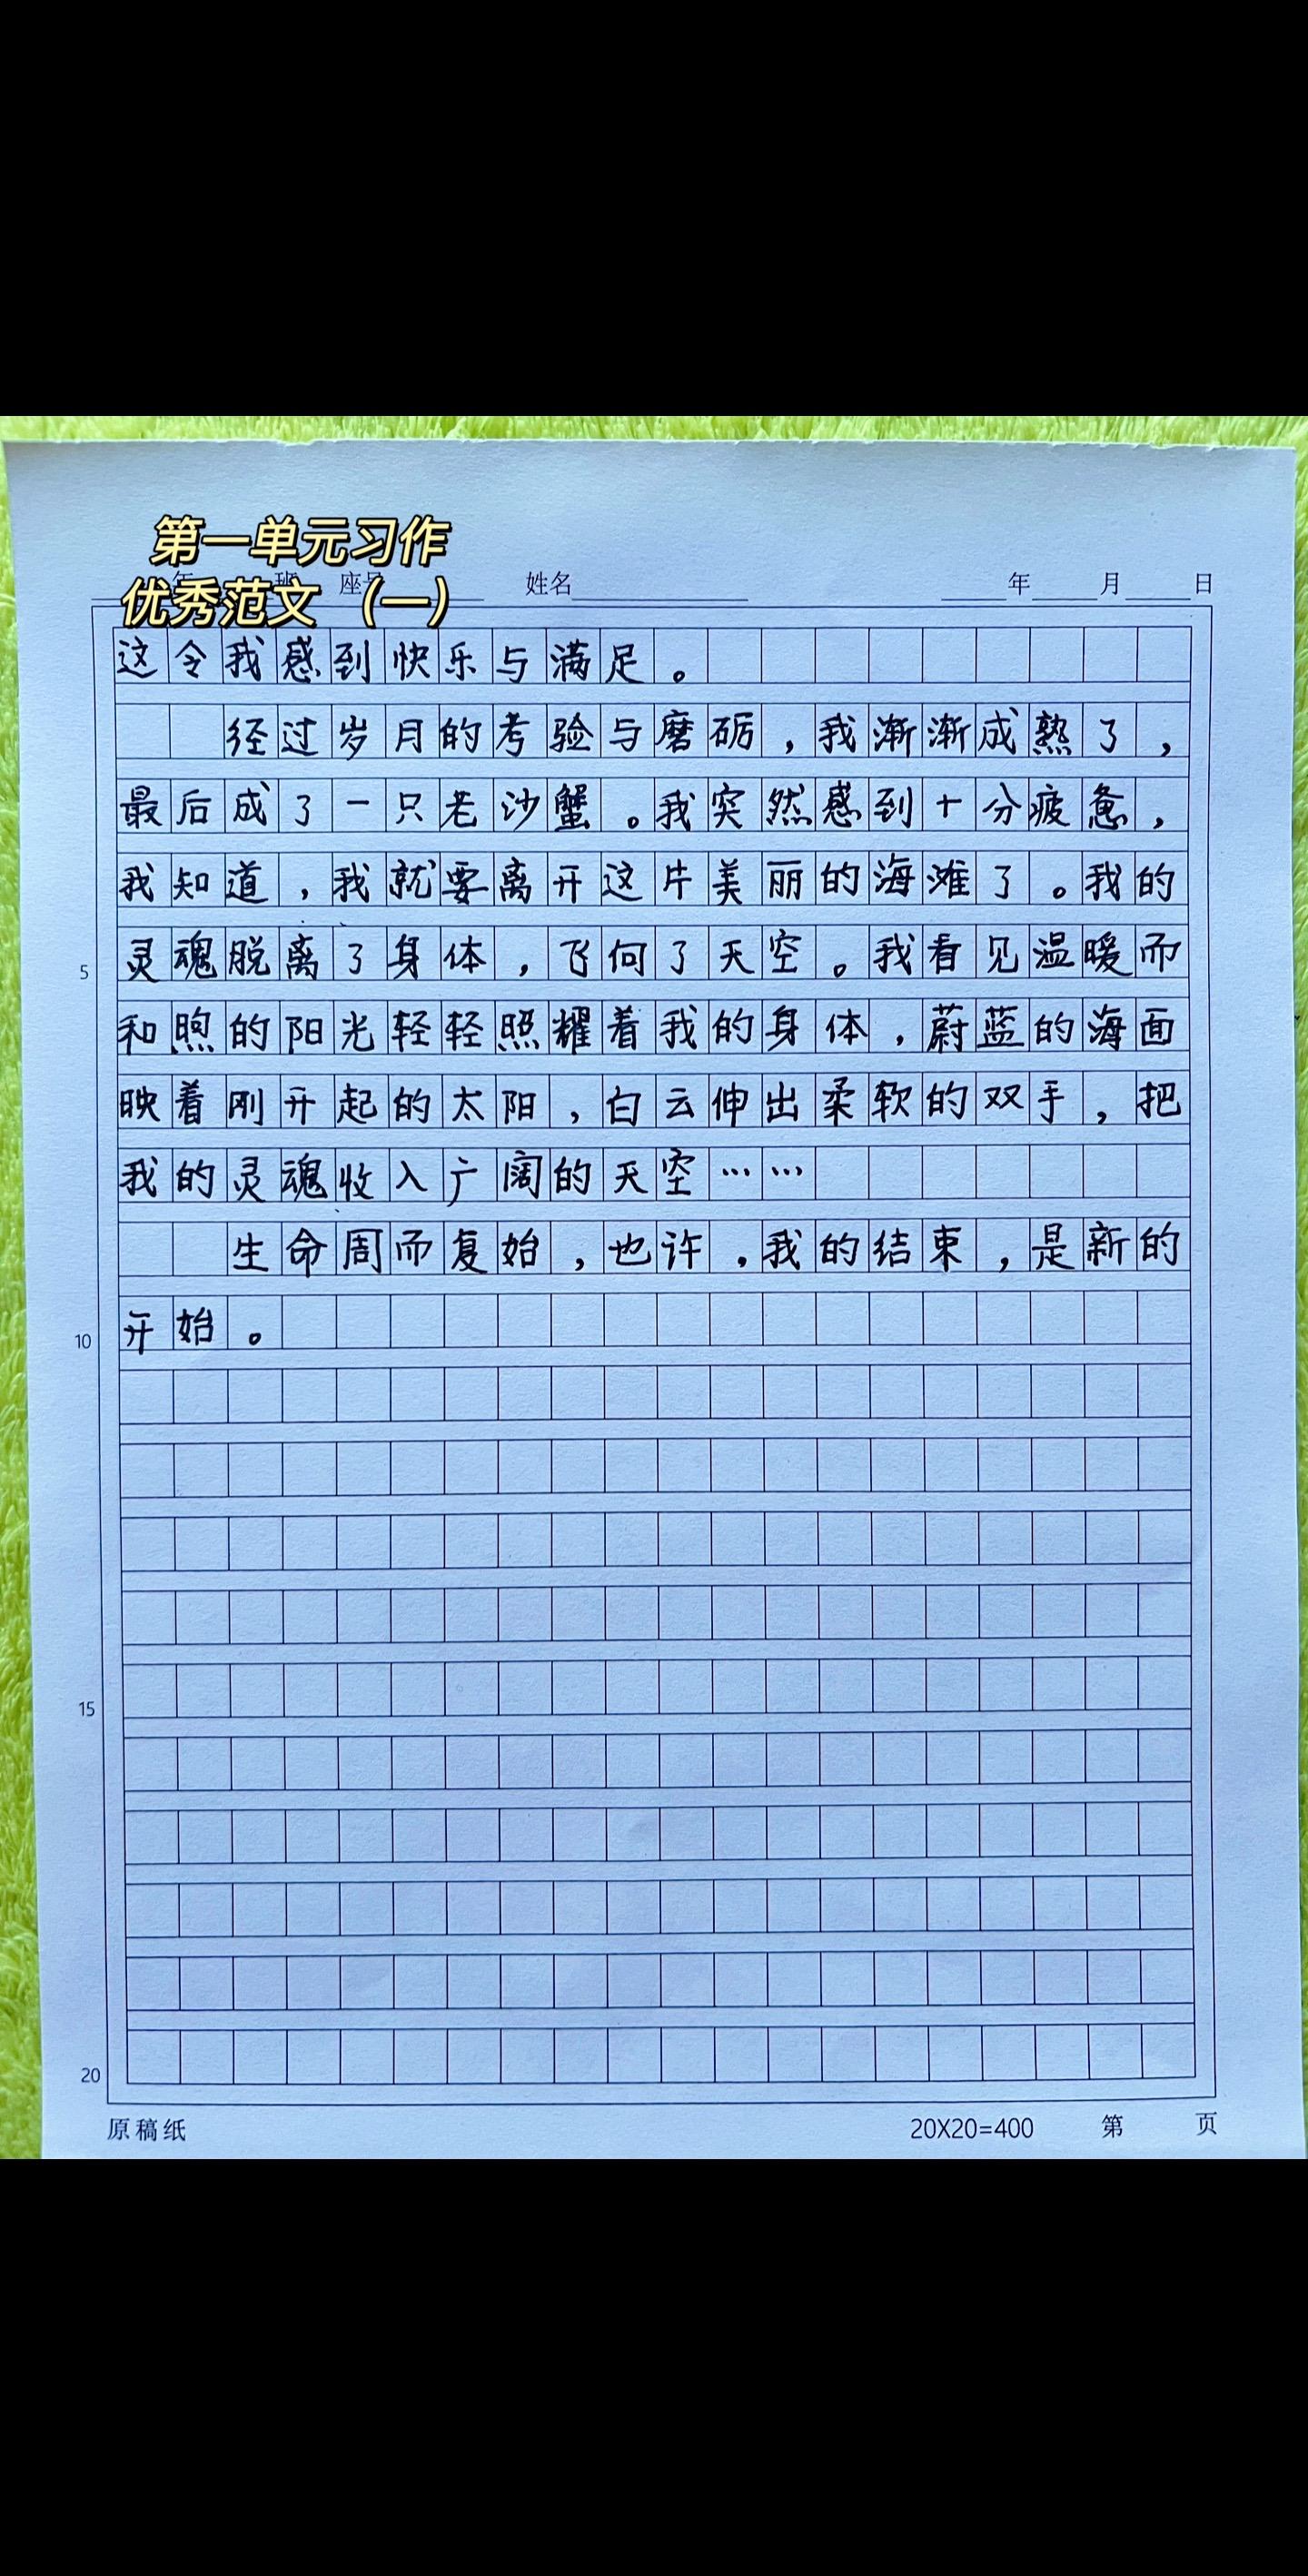 第一单元习作
优秀范文（一）
年 班 座号 姓名 年 月 日
这令我感到快乐与满足。
经过岁月的考验与磨砺，我渐渐成熟了，
最后成了一只老沙蟹。我突然感到十分疲惫，
我知道，我就要离开这片美丽的海滩了。我的
灵魂脱离了身体，飞向了天空。我看见温暖而
5
和煦的阳光轻轻照耀着我的身体，蔚蓝的海面
映着刚升起的太阳，白云伸出柔软的双手，把
我的灵魂收入广阔的天空……
生命周而复始，也许，我的结束，是新的
开始。
10
15
20
原稿纸 20X20=400 第 页